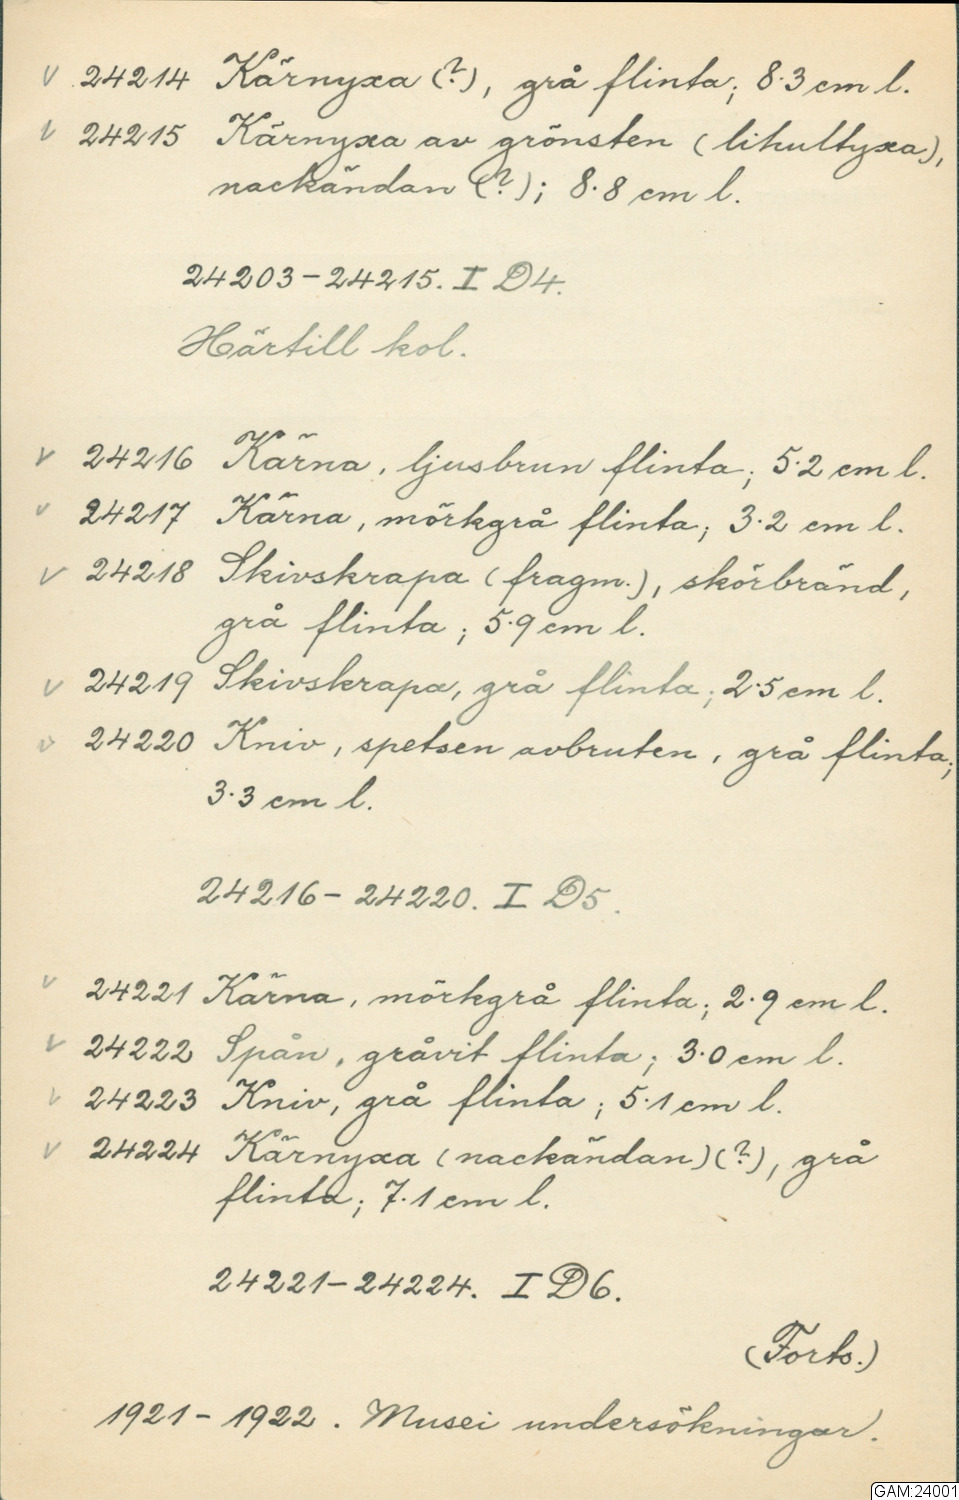 v 24214 Kärnyxa (?), grå flinta; 8.3 cm l.
v 24215 Kärnyxa av grönsten (lihultyxa),
nackändan (?); 8.8 cm l.
24203-24215. I D4.
Härtill kol.
v 24216 Kärna, ljusbrun flinta; 5.2 cm l.
v 24217 Kärna, mörkgrå flinta; 3.2 cm l.
v 24218 Skivskrapa (fragm.), skörbränd,
grå flinta; 5.9 cm l.
v 24219 Skivskrapa, grå flinta; 2.5 cm l.
v 24220 Kniv, spetsen avbruten, grå flinta;
3.3 cm l.
24216-24220. I D5.
v 24221 Kärna, mörkgrå flinta; 2.9 cm l.
v 24222 Spån, gråvit flinta; 3.0 cm l.
v 24223 Kniv, grå flinta; 5.1 cm l.
v 24224 Kärnyxa (nackändan)(?), grå
flinta; 7.1 cm l.
24221-24224. I D6.
(Forts.)
1921-1922. Musei undersökningar.
GAM:24001